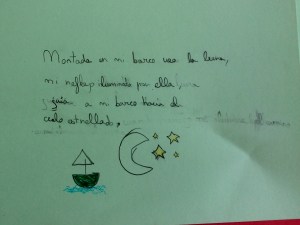 Montada en mi barco veo la luna,
mi reflejo iluminado por ella,
guian a mi barco hacia el
cielo estrellado.